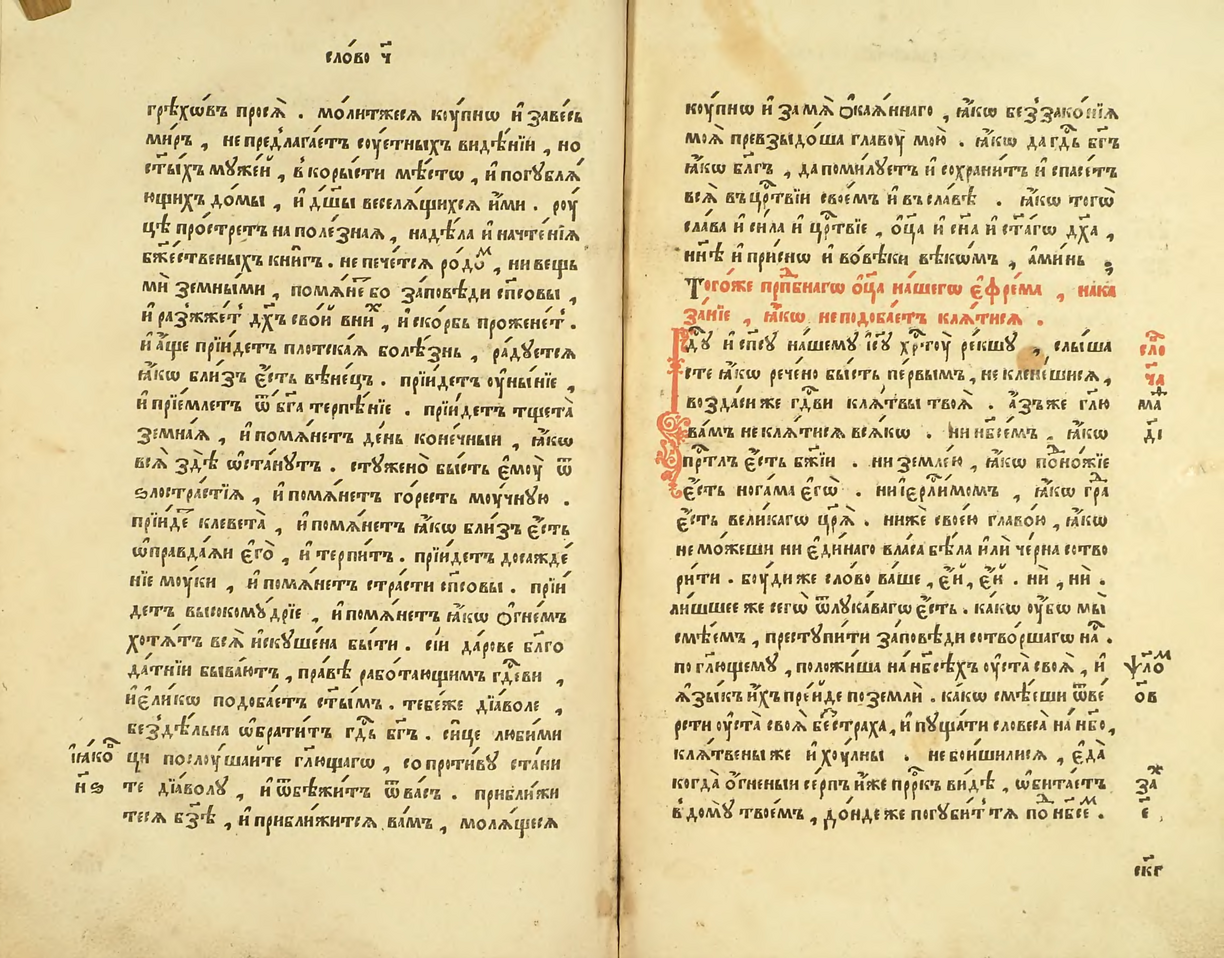 сло́во ч҃
грѣхо́въ прося̀ . мо́литжеся кꙋ́пнѡ и҆ за ве́сь
ми́ръ , не пред̾лага́етъ сꙋ́етныхъ ви́дѣнїи , но
ст҃ы́хъ мꙋ́жей , в̾ коры́сти мѣ́стѡ , и҆ погꙋблѧ́
ющихъ до́мы , и҆ дш҃ы веселѧ́щихсѧ и҆́ми . рꙋ́
цѣ простре́тъ на поле́знаѧ , на дѣ́ла и҆ на чте́нїѧ
бж҃е́ственыхъ кни́гъ . не пече́тсѧ ро́домъ , ни вещь
ми́ земны́ми , помѧне́ бо за́повѣди сп҃совы ,
и҆ раз̾жже́т̾ дх҃ъ сво́й в ни́х , и҆ ско́рбь прожене́т .
и҆ а҆́ще прїи́детъ пло́тскаѧ болѣ́знь , ра́дꙋетсѧ
ꙗ҆́кѡ бли́зъ є҆́сть вѣне́цъ . прїи́детъ ᲂу҆ны́нїе ,
и҆ прїе́млетъ ѿ бг҃а терпѣ́нїе . прїи́детъ тщета̀
земна́ѧ , и҆ помѧ́нетъ де́нь коне́чныи , ꙗ҆́кѡ
всѧ̀ здѣ̀ ѡ҆ста́нꙋтъ . стꙋ́жено бы́сть є҆мꙋ̀ ѿ
ѕлостра́стїѧ , и҆ помѧ́нетъ го́ресть мꙋ́чнꙋю .
прїи́де клевета̀ , и҆ помѧ́нетъ ꙗ҆́кѡ бли́зъ є҆́сть
ѡ҆правда́ѧи є҆го̀ , и҆ терпи́тъ . прїи́детъ досажде́
нїе мꙋ́ки , и҆ помѧ́нетъ стра́сти сп҃совы . прїи́
детъ высокомꙋ́дрїе , и҆ помѧ́нетъ ꙗ҆́кѡ ѻ҆гне́мъ
хотѧ́тъ всѧ̀ и҆скꙋше́на бы́ти . сїи́ да́рове бл҃го
да́тнїи быва́ютъ , пра́вѣ рабо́тающимъ гд҇ви ,
и҆ є҆ли́кѡ подоба́етъ ст҃ы́мъ . тебе́ же дїа́воле ,
без̾дѣ́льна ѡ҆брати́тъ гд҇ь бг҃ъ . си́це люби́ми
ци послꙋ́шайте гл҃ющагѡ , сопроти́вꙋ ста́ни
те дїа́волꙋ , и҆ ѿбѣжи́тъ ѿ ва́съ . прибли́жи
тесѧ бз҃ѣ , и҆ прибли́житсѧ ва́мъ , молѧ́щесѧ
і҆а́ко
и҆ ѕ
кꙋ́пнѡ и҆ за мѧ̀ ѻ҆каѧ́ннаго , ꙗ҆́кѡ без̾зако́нїѧ
моѧ̀ превзыдо́ша главꙋ̀ мою̀ . ꙗ҆́кѡ да гд҇ь бг҃ъ
ꙗ҆́кѡ бл҃гъ , да поми́лꙋетъ и҆ сохрани́тъ и҆ спасе́тъ
всѧ̀ въ црⷭ҇твїи свое́мъ и҆ въ сла́вѣ . ꙗ҆́кѡ того̀
сла́ва и҆ си́ла и҆ црⷭ҇твїе , ѻ҆ц҃а и҆ сн҃а и҆ ст҃а́гѡ дх҃а ,
нн҃ѣ и҆ при́снѡ и҆ во вѣ́ки вѣкѡ́мъ , а҆ми́нь .
Того́же прпⷣбнагѡ ѻ҆ц҃а на́шегѡ є҆фре́ма , нака
за́нїе , ꙗ҆́кѡ не подоба́етъ клѧ́тисѧ .
Гд҇ꙋ и҆ сп҃сꙋ на́шемꙋ і҆с҃ꙋ хрⷭ҇тꙋ ре́кшꙋ , слы́ша
сте ꙗ҆́кѡ рече́но бы́сть пе́рвымъ , не кле́нешисѧ ,
возда́си же гд҇ви клѧ́твы твоѧ̀ . а҆́зъ же гл҃ю
ва́мъ не клѧ́тисѧ всѧ́кѡ . ни нб҃се́мъ , ꙗ҆́кѡ
прⷭ҇тлъ є҆́сть бж҃їи . ни земле́ю , ꙗ҆́кѡ подно́жїе
є҆́сть нога́ма є҆гѡ̀ . ни і҆ерⷭ҇ли́момъ , ꙗ҆́кѡ гра́
є҆́сть вели́кагѡ цр҃ѧ̀ . ниже́ свое́ю главо́ю , ꙗ҆́кѡ
не мо́жеши ни є҆ди́наго вла́са бѣ́ла и҆лѝ че́рна сотво
ри́ти . бꙋ́ди же сло́во ва́ше , є҆́й , є҆́й . нѝ , нѝ .
ли́шшее же сегѡ̀ ѿ лꙋка́вагѡ є҆́сть . ка́кѡ ᲂу҆́бѡ мы̀
смѣ́емъ , престꙋпи́ти за́повѣди сотво́ршагѡ на́с .
по гл҃ющемꙋ , положи́ша на нб҃сѣ́хъ ᲂу҆ста̀ своѧ̀ , и҆
ѧ҆зы́къ и҆́хъ пре́йде по землѝ . ка́кѡ смѣ́еши ѿве
рсти ᲂу҆ста̀ своѧ̀ беⷥ стра́ха , и҆ пꙋща́ти словеса̀ на нб҃о ,
клѧ́твены же и҆ хꙋ́лны . не бои́шилисѧ , є҆да̀
когда̀ ѻ҆́гненыи се́рпъ и҆́же прⷪ҇ркъ ви́дѣ , ѡ҆бита́етъ
в̾ домꙋ̀ твое́мъ , до́ндеже погꙋби́т тѧ под̾ нб҃се́м .
сло́
ча҃
маⷴ
д҃і
ѱло́м
ов
за́х
е҃
скг҃